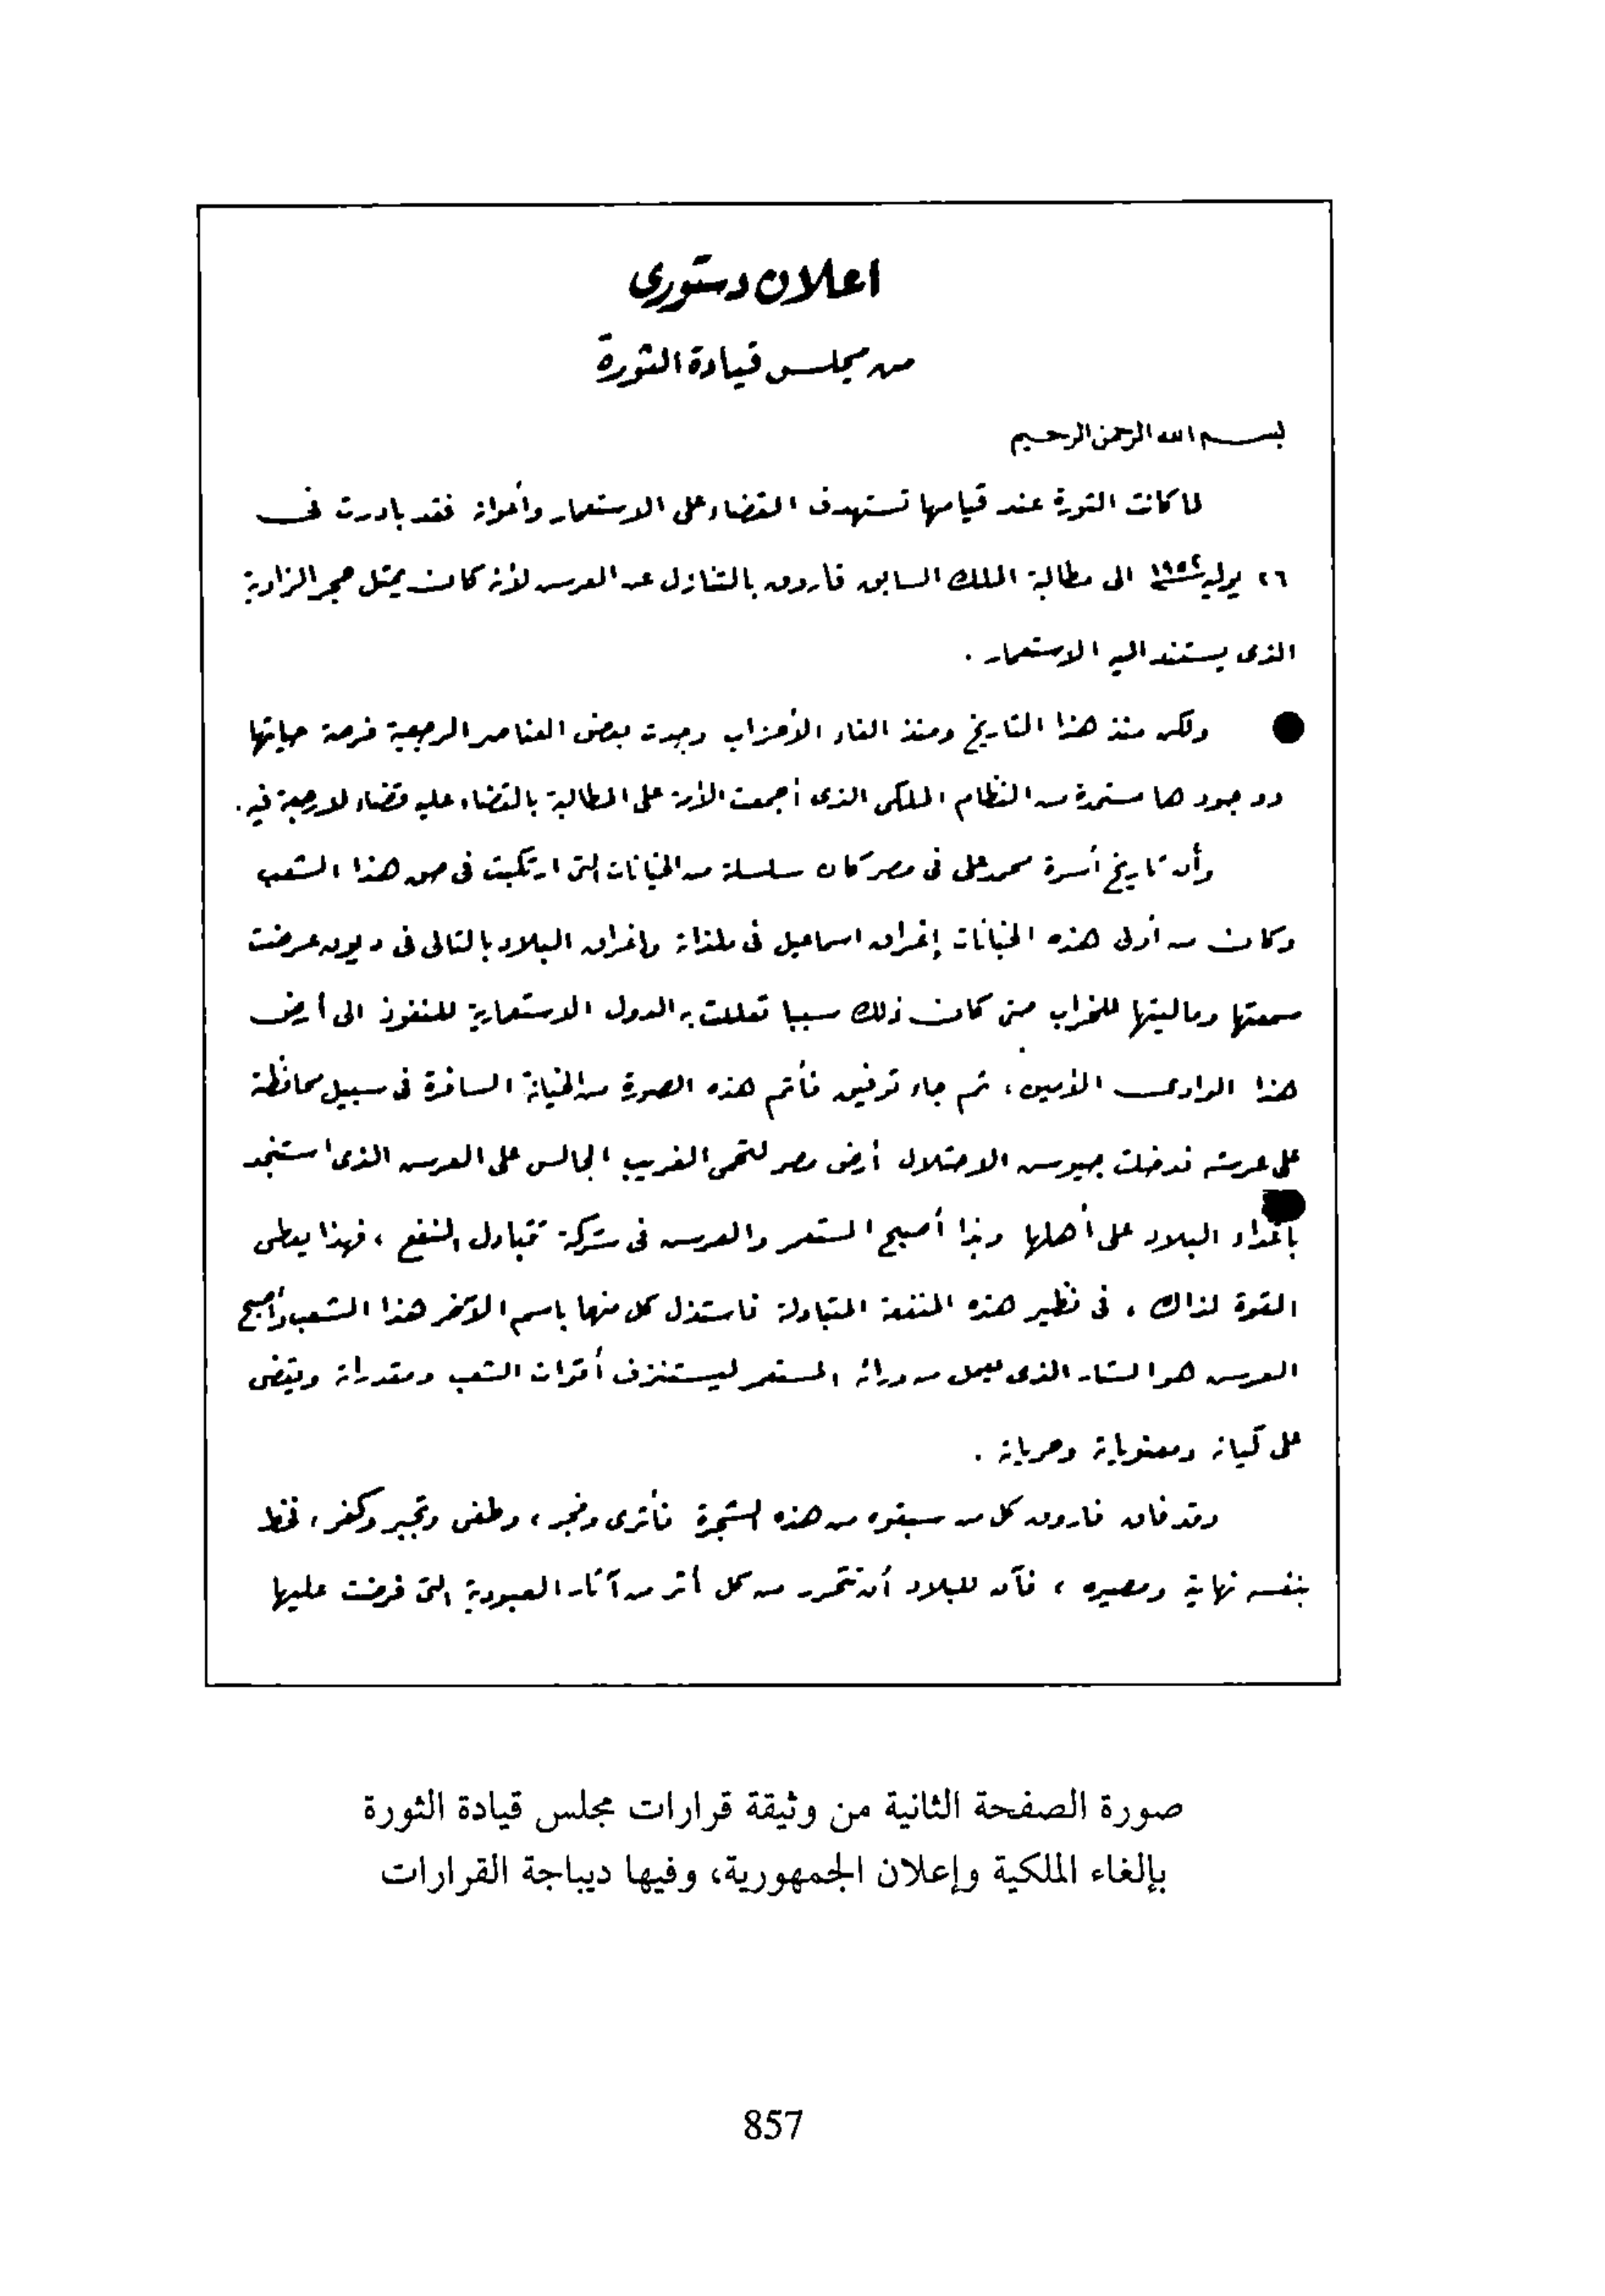 اعلان دستورى
من مجلس قيادة الثورة
بسم الله الرحمن الرحيم
لما كانت الثورة عند قيامها تستهدف القضاء على الاستعمار وأعوانه فقد بادرت فى
٢٦ يوليه سنة ١٩٥٢ الى مطالبة الملك السابق فاروق بالتنازل عن العرش لأنه كان يمثل حجر الزاوية
الذى يستند اليه الاستعمار .
ولكن منذ هذا التاريخ ومنذ الغاء الأحزاب وجدت بعض العناصر الرجعية فرصة حياتها
ووجودها مستمدة من النظام الملكى الذى أجمعت الأمة على المطالبة بالقضاء عليه قضاء لا رجعة فيه .
وأن تاريخ أسرة محمد على فى مصر كان سلسلة من الخيانات التى ارتكبت فى حق هذا الشعب
وكان من أولى هذه الخيانات إغراق اسماعيل فى ملذاته وإغراق البلاد بالتالى فى ديون عرضت
سمعتها وماليتها للخراب حتى كان ذلك سببا تعللت به الدول الاستعمارية للنفوذ الى أرض
هذا الوادى الأمين ، ثم جاء توفيق فأتم هذه الصورة من الخيانة السافرة فى سبيل محافظته
على عرشه فدخلت جيوش الاحتلال أرض مصر لتحمى الغريب الجالس على العرش الذى استنجد
بأعداء البلاد على أهلها وبذا أصبح المستعمر والعرش فى شركة تتبادل النفع ، فهذا يعطى
القوة لذاك ، فى نظير هذه المنفعة المتبادلة فاستذل كل منهما باسم الآخر هذا الشعب وأصبح
العرش هو الستار الذى يعمل من ورائه المستعمر ليستنزف أقوات الشعب ومقدراته ويقضى
على كيانه ومعنوياته وحرياته .
وقد فاق فاروق كل من سبقوه من هذه الشجرة فأثرى وفجر ، وطغى وتجبر وكفر ، فخط
بنفسه نهايته ومصيره ، فآن للبلاد أن تتحرر من كل أثر من آثار العبودية التى فرضت عليها
صورة الصفحة الثانية من وثيقة قرارات مجلس قيادة الثورة
بإلغاء الملكية وإعلان الجمهورية، وفيها ديباجة القرارات
857